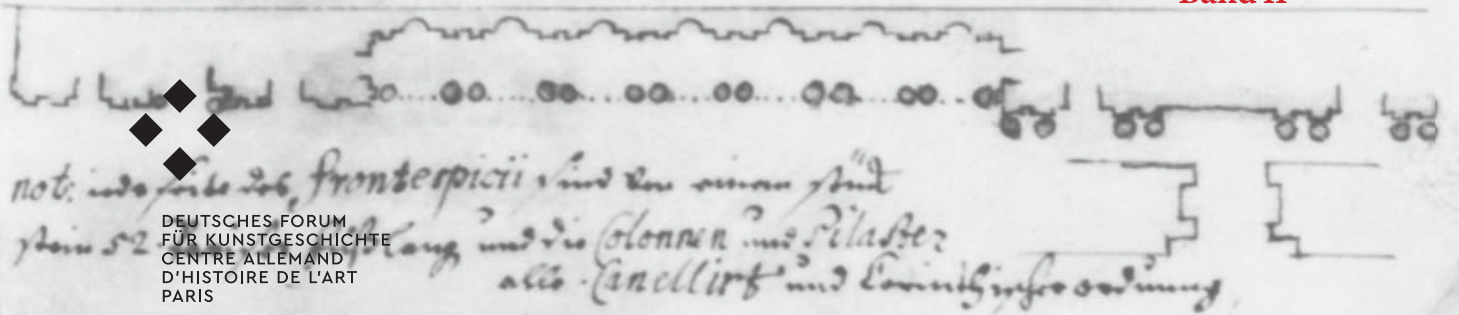 Band II
not: iede seite des frontespicii sind von einem stück
stein 52 lang und die Colonnen und Pilaster
alle Canellirt und Corinthischer ordnung
DEUTSCHES FORUM
FÜR KUNSTGESCHICHTE
CENTRE ALLEMAND
D'HISTOIRE DE L'ART
PARIS